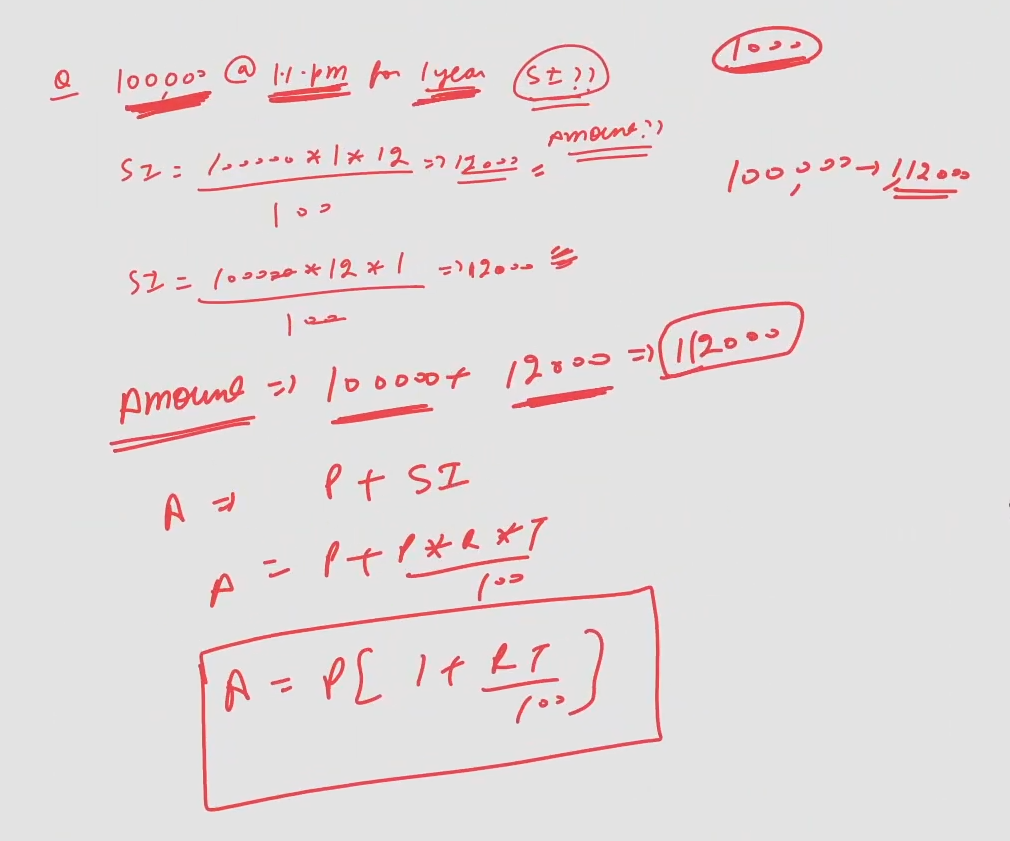 Q 100,000 @ 1.1. pm for 1 year SI ??
1000
Amount ??
SI = 100000 * 1 * 12 => 12000 =
100
100,000 → 1,12000
SI = 100000 * 12 * 1 => 12000
100
Amount => 100000 + 12000 => 112000
A => P + SI
A = P + P * R * T
100
A = P[ 1 + RT ]
100